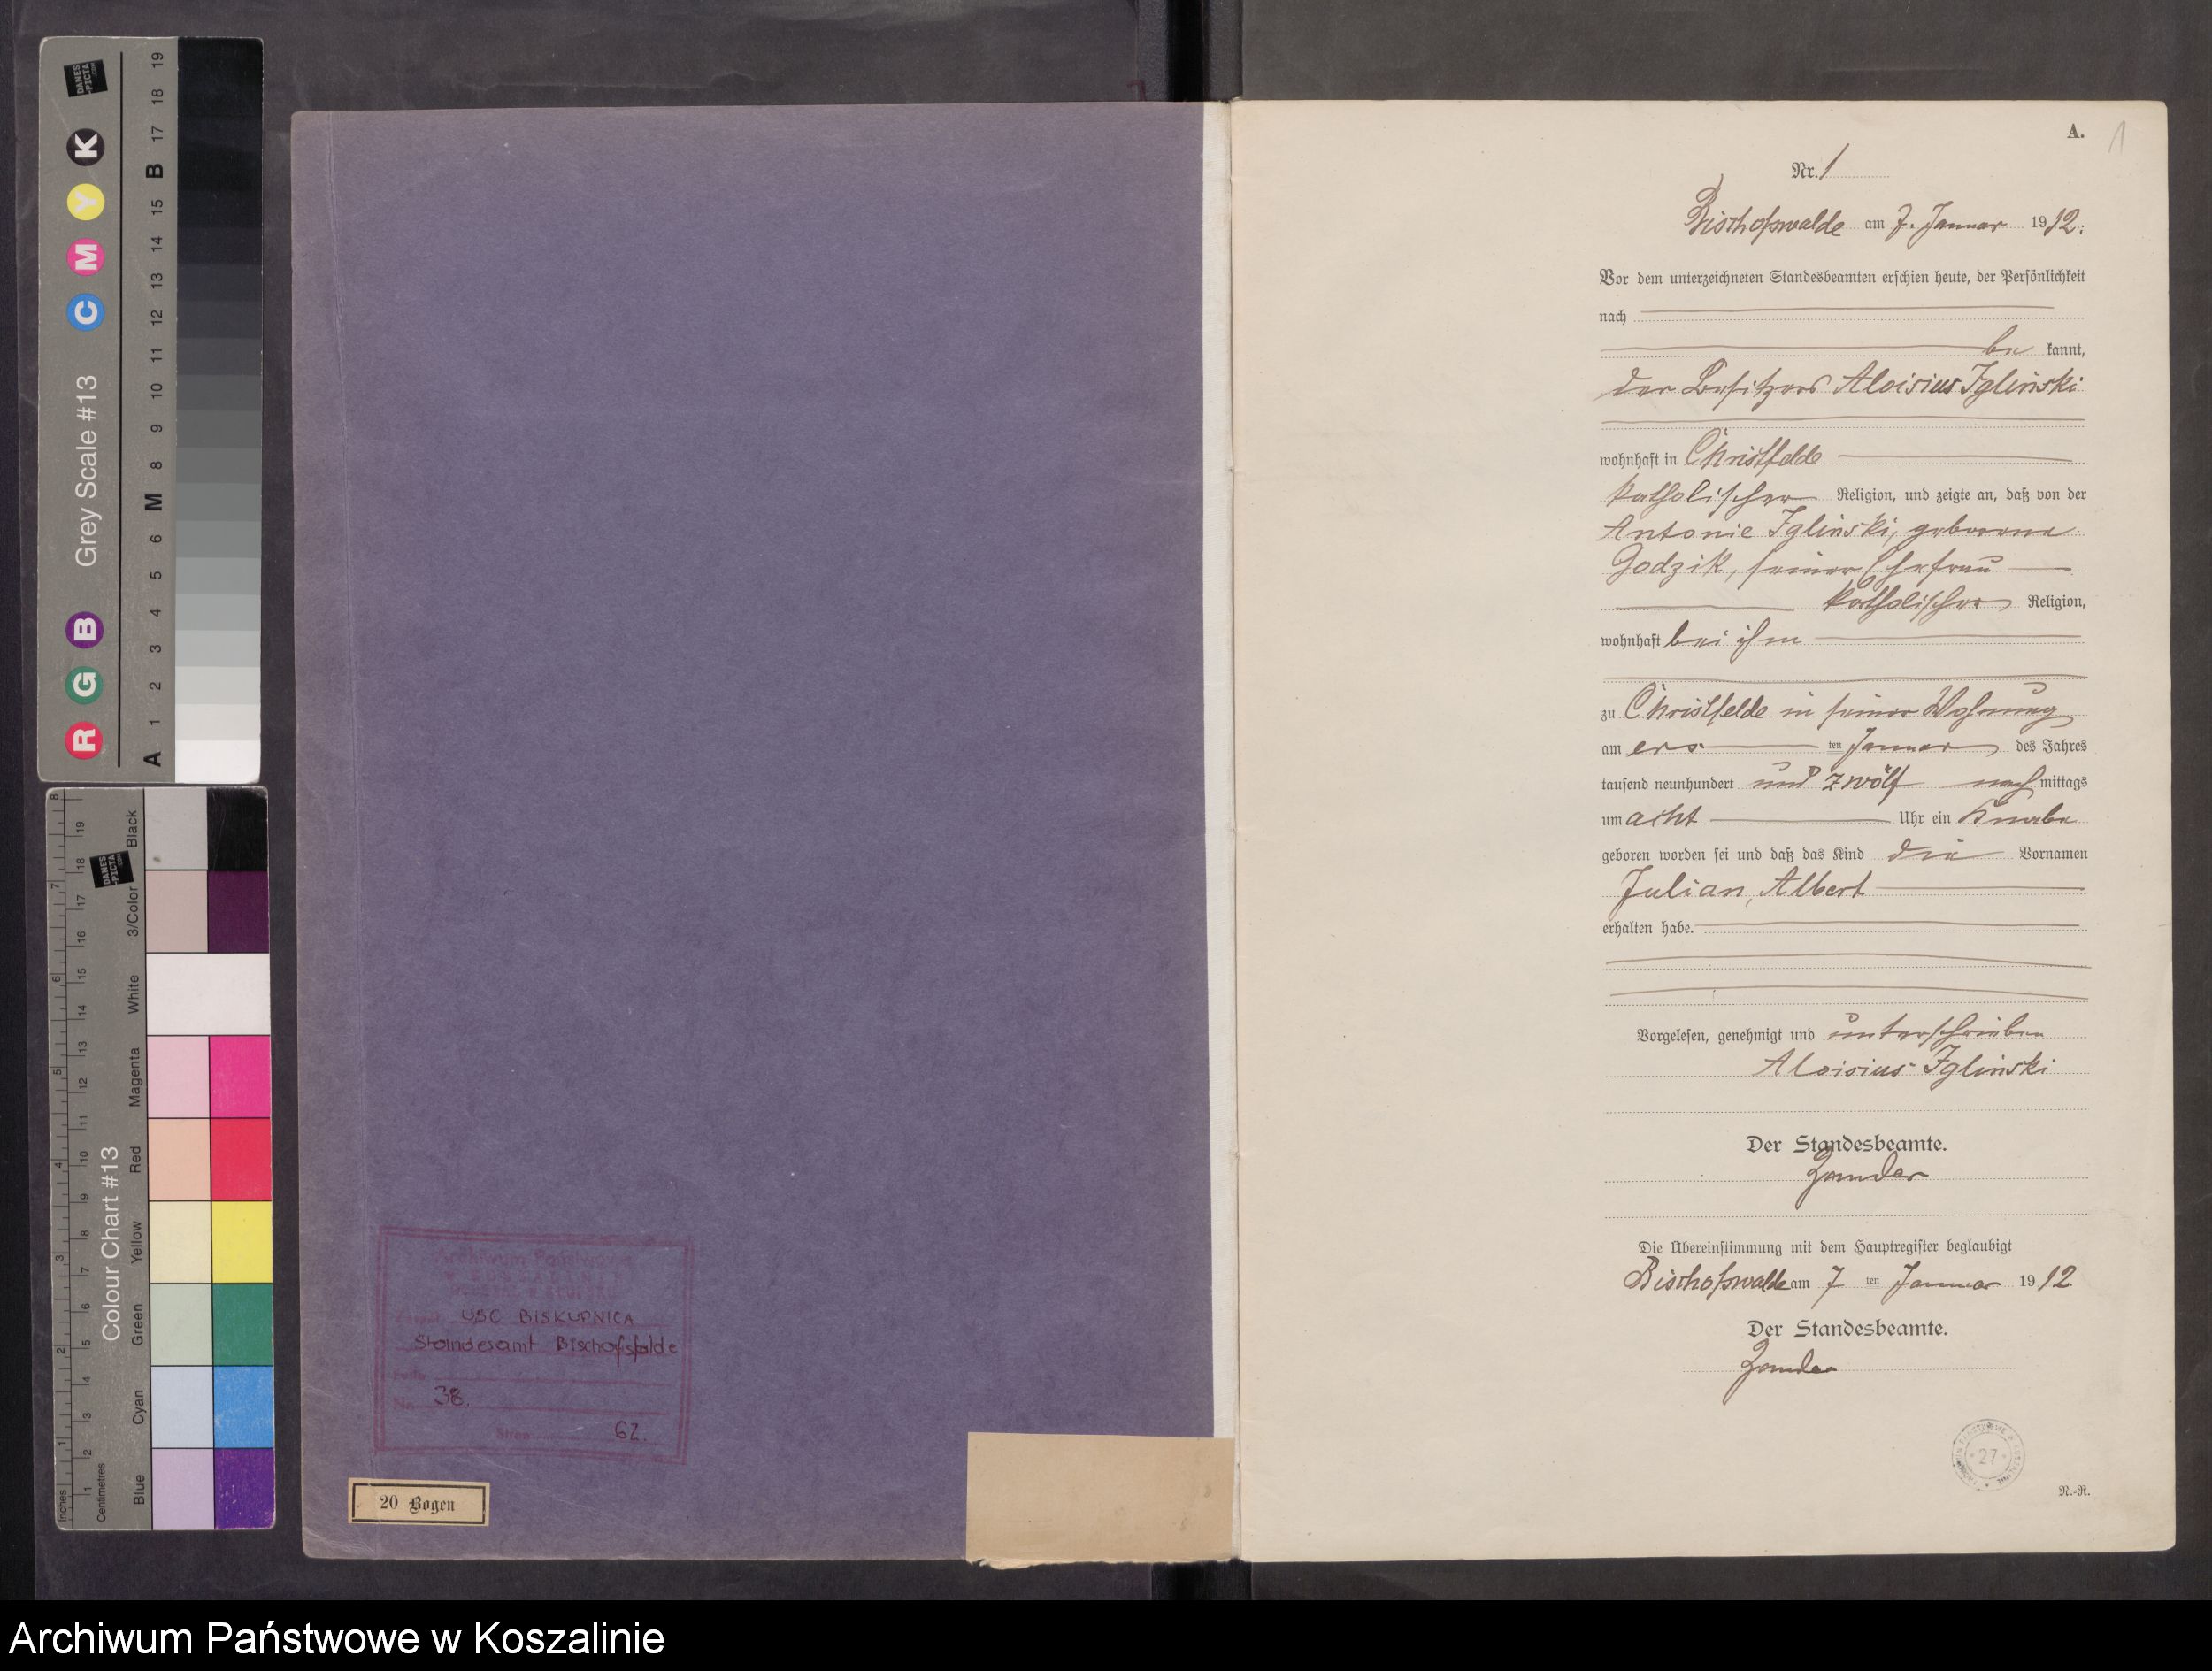 DANES
-PICTA
.COM
Grey Scale #13
R G B C M Y K
A 1 2 3 4 5 6 M 8 9 10 11 12 13 14 15 B 17 18 19
DANES
-PICTA
.COM
Colour Chart #13
Blue Cyan Green Yellow Red Magenta White 3/Color Black
Inches 1 2 3 4 5 6 7 8
Centimetres 1 2 3 4 5 6 7 8 9 10 11 12 13 14 15 16 17 18 19
Archiwum Państwowe
USC BISKUPNICA
Standesamt Bischofsfalde
No 38.
Stron 62.
20 Bogen
A.
1
Nr. 1
Bischofswalde am 7. Januar 1912.
Vor dem unterzeichneten Standesbeamten erschien heute, der Persönlichkeit
nach
be kannt,
der Besitzers Aloisius Iglinski
wohnhaft in Christfelde
katholischer Religion, und zeigte an, daß von der
Antonie Iglinski, geborene
Godzik, seiner Ehefrau
katholischer Religion,
wohnhaft bei ihm
zu Christfelde in seiner Wohnung
am ers ten Januar des Jahres
tausend neunhundert und zwölf nach mittags
um acht Uhr ein Knabe
geboren worden sei und daß das Kind die Vornamen
Julian, Albert
erhalten habe.
Vorgelesen, genehmigt und unterschrieben
Aloisius Iglinski
Der Standesbeamte.
Zander
Die Übereinstimmung mit dem Hauptregister beglaubigt
Bischofswalde am 7 ten Januar 1912
Der Standesbeamte.
Zander
27
N.-R.
Archiwum Państwowe w Koszalinie